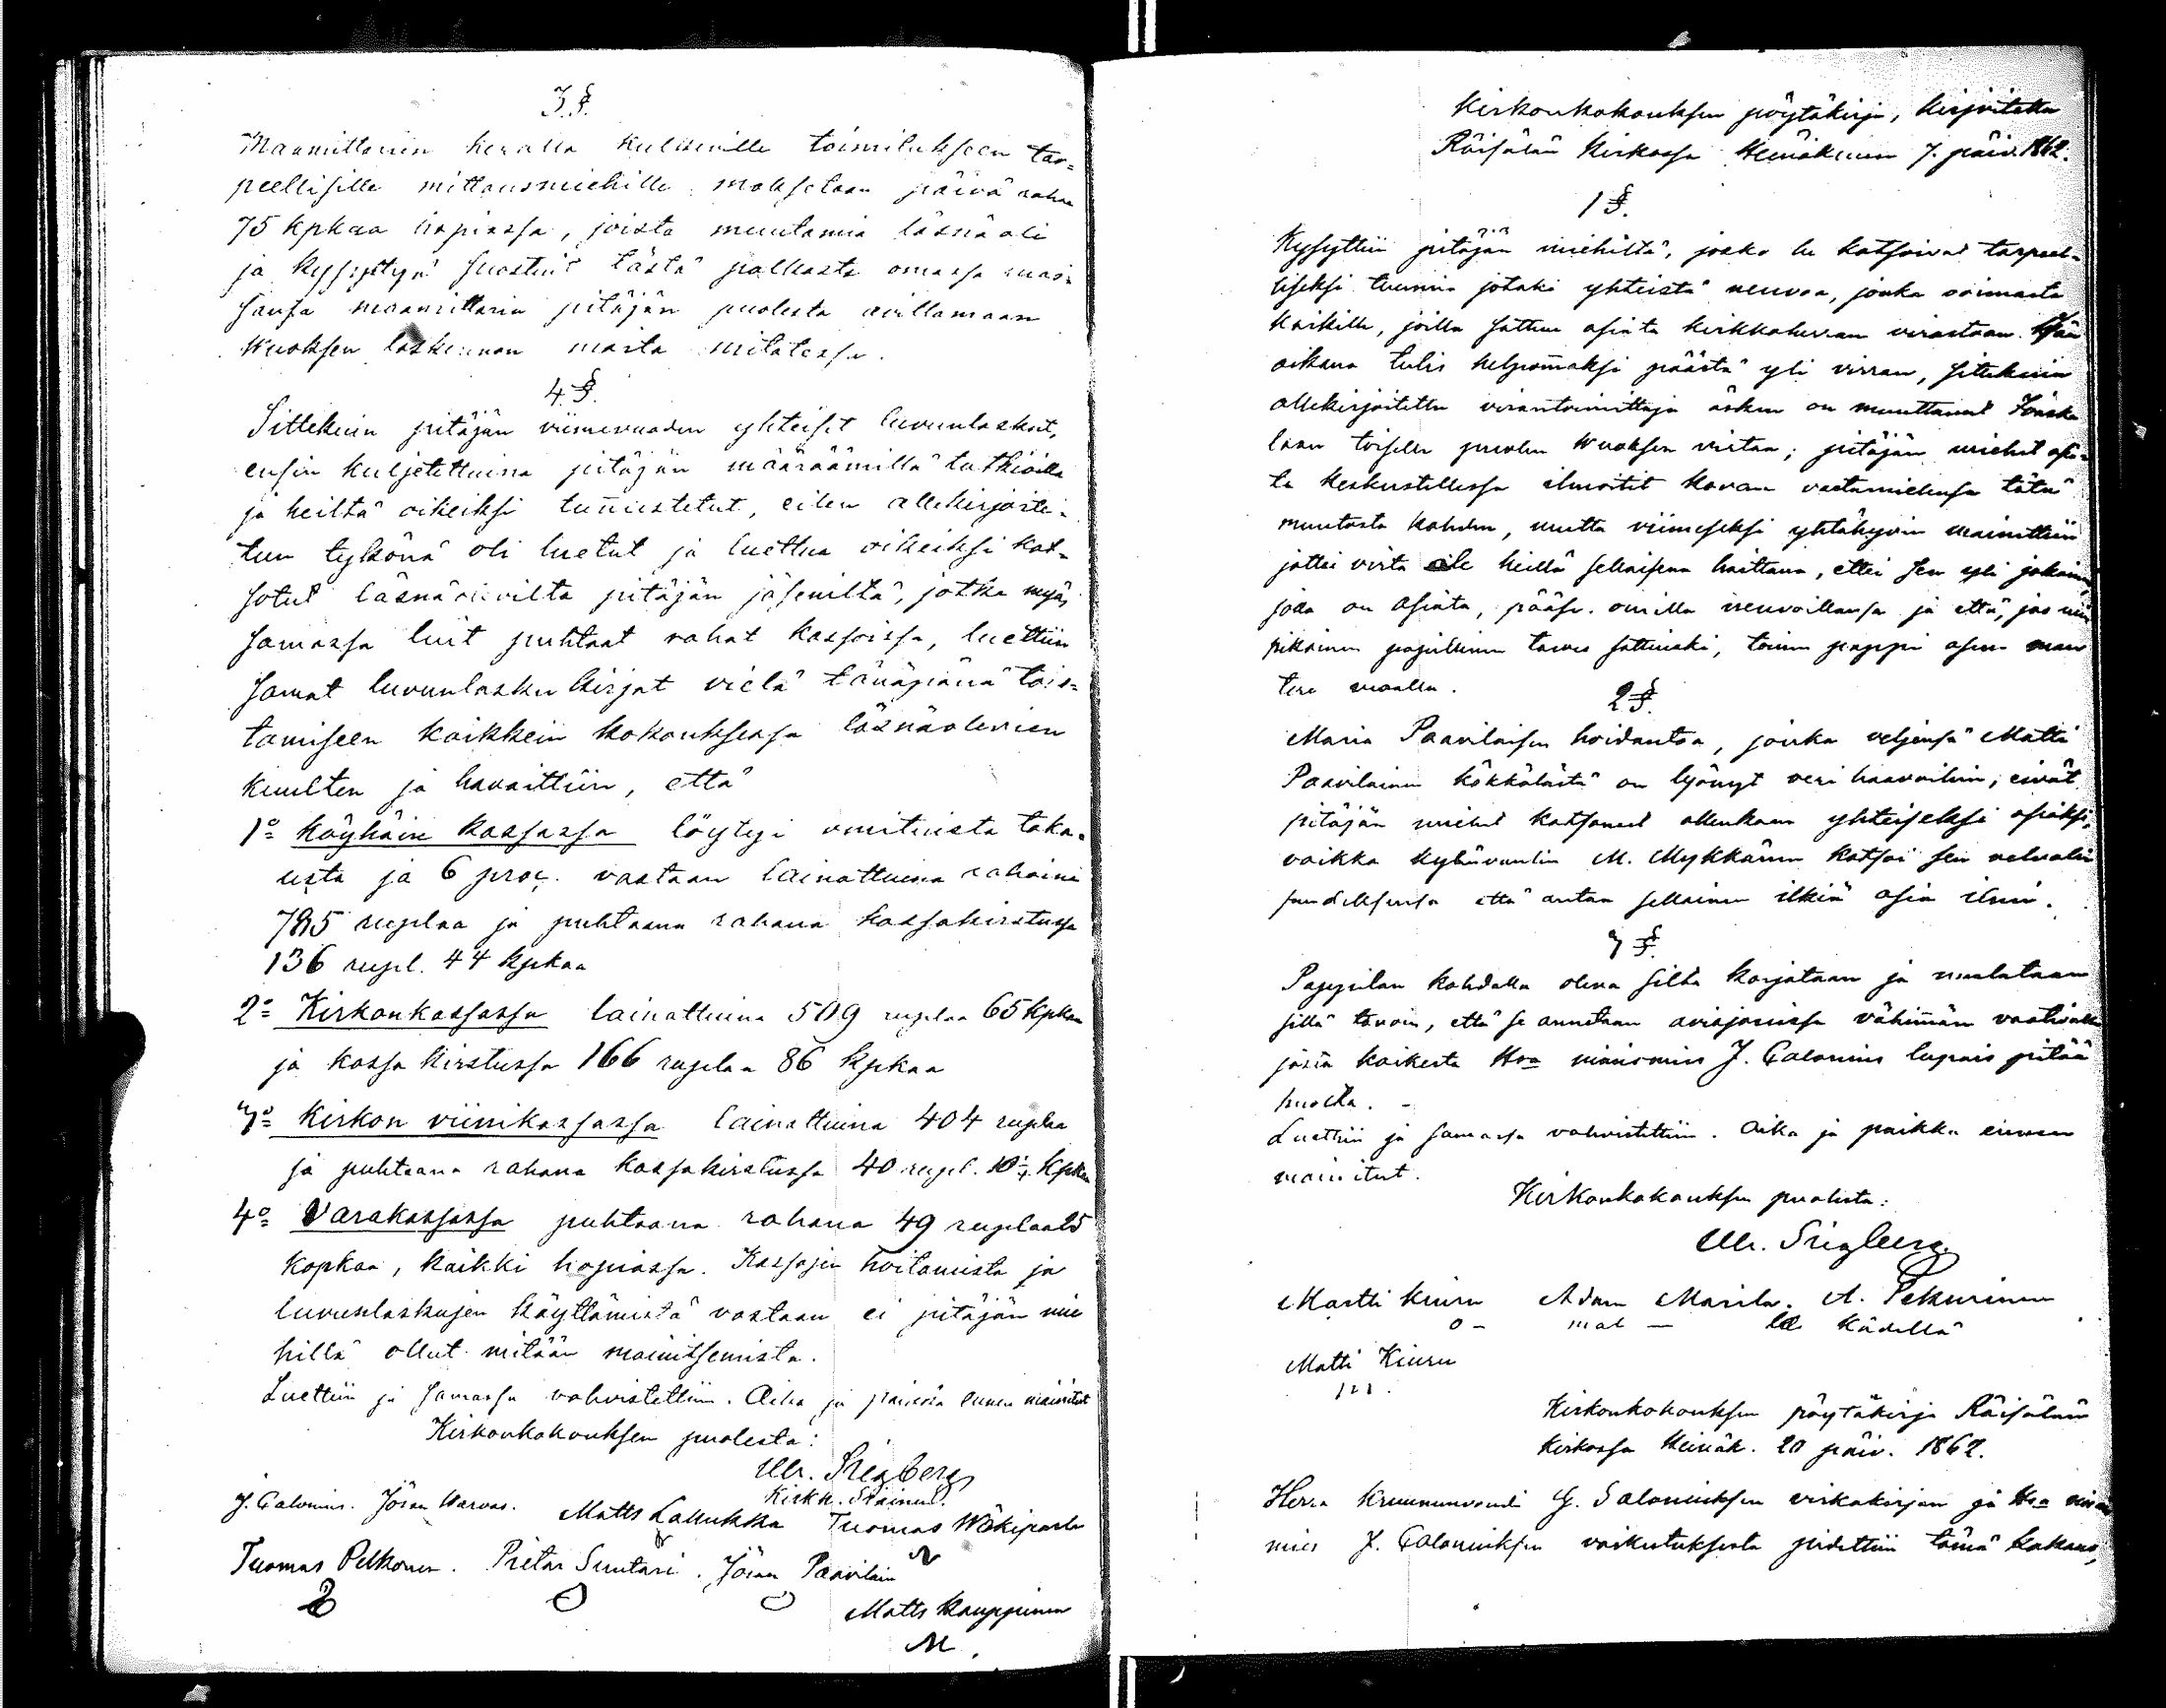 3 §.
Maamittarin keralla kulkeville toimitukseen tar=
peellisille mittausmiehille maksetaan päivä raha
75 kpkaa hopiassa, joista muutamia läsnä oli
ja kysyttyä suostuit tästä palkasta omassa ruas-
sansa maamittaria pitäjän puolesta auttamaan
Wuoksen laskennan maita mitatessa.
4 §.
Sittekuin pitäjän viimevuoden yhteiset luvunlaskut,
ensin kuljetettuina pitäjän määräämillä tutkioilla
ja heiltä oikeiksi tunnustetut, eilen allekirjoite-
tun tykönä oli luetut ja luettua oikeiksi kat-
sotut läsnäolevilta pitäjän jäseniltä, jotka myös
samassa luit puhtaat rahat kassoissa, luettiin
samat luvunlasku kirjat vielä tänäpänä tois-
tamiseen kaikkein kokouksessa läsnäolevien
kuulten ja havaittiin, että
1:o köyhäin kassassa löytyi omituista taka-
usta ja 6 proc. vastaan lainattuina rahoina
785 ruplaa ja puhtaana rahana kassakirstussa
136 rupl. 44 kpkaa
2:o Kirkonkassassa lainattuina 509 ruplaa 65 kpkaa
ja kassa kirstussa 166 ruplaa 86 kpkaa
3:o Kirkon viinikassassa lainattuina 404 ruplaa
ja puhtaana rahana kassakirstussa 40 rupl. kpkaa
4:o Varakassassa puhtaana rahana 49 ruplaa 25
kopkaa, kaikki hopiassa. Kassojen hoitamista ja
luvunlaskujen käyttämistä vastaan ei pitäjän mie
hillä ollut mitään mainitsemista.
Luettiin ja samassa vahvistettiin. Aika ja paikka ennen mainitut
Kirkonkokouksen puolesta:
Ulr. Sriglberg
J. Calonius. Jösan Warvas. Matts Lallukka Tuomas Wäkiparta
Tuomas Pelkonen. Pietar Suutari. Jöran Paavilain
Matts Kauppinen
M.
Kirkonkokouksen pöytäkirja, kirjoitettu
Räisälän Kirkossa Heinäkuun 7. päiv. 1862.
1 §.
Kysyttiin pitäjän miehiltä, josko he katsoivat tarpeel-
liseksi tuumia jotaki yhteistä neuvoa, jonka voimasta
kaikille, joilla sattuu asiata kirkkoherran virastoon kesän
aikana tulis helpommaksi päästä yli virran, sitekuin
allekirjoitettu virantoimittaja äsken on muuttanut
laan toisella puolen Wuoksen virtaa; pitäjän miehet asia-
ta keskustellessa ilmoitit kovan vastamielensä tätä
muutosta kohden, mutta viimeseksi yhtähyvin mainittiin
jottei virta ole heillä sellaisena haittana, ettei sen yli jokainen
jolla on asiata, pääse omilla neuvoillansa ja että, jos niin
pikainen papillinen tarve sattuiski, toinen pappi asuu man
tere maalla.
2 §.
Maria Paavilaisen hoidantoa, jonka veljensä Matti
Paavilainen kökkölästä on lyönyt veri haavoihin, eivät
pitäjän miehet katsoneet ollenkaan yhteiseksi asiaksi,
vaikka kylänvanhin M. Mykkänen katsoi sen velvolli
suudeksensa että antaa sellainen ilkiä asia ilmi.
3 §.
Pappilan kohdalla oleva silta korjataan ja muulataan
sillä tavoin, että se annetaan arviojanissa vähimmän vaativalle
josta kaikesta Hra nimismies J. Calonius lupais pitää
huolta. -
Luettiin ja samassa vahvistettiin. Aika ja paikka ennen
mainitut.
Kirkonkokouksen puolesta:
Ulr. Sriglberg.
Martti Kiuru Adam Marila. A. Pekurinen
kädellä
Matti Kiuru
Kirkonkokouksen pöytäkirja Räisälän
kirkossa Heinäk. 20 päiv. 1862.
Herra Kruununvouti G. Saloniuksen virkakirjan ja Hra nimis
mies J. Caloniuksen vaikutuksesta pidettiin tämä kokous,